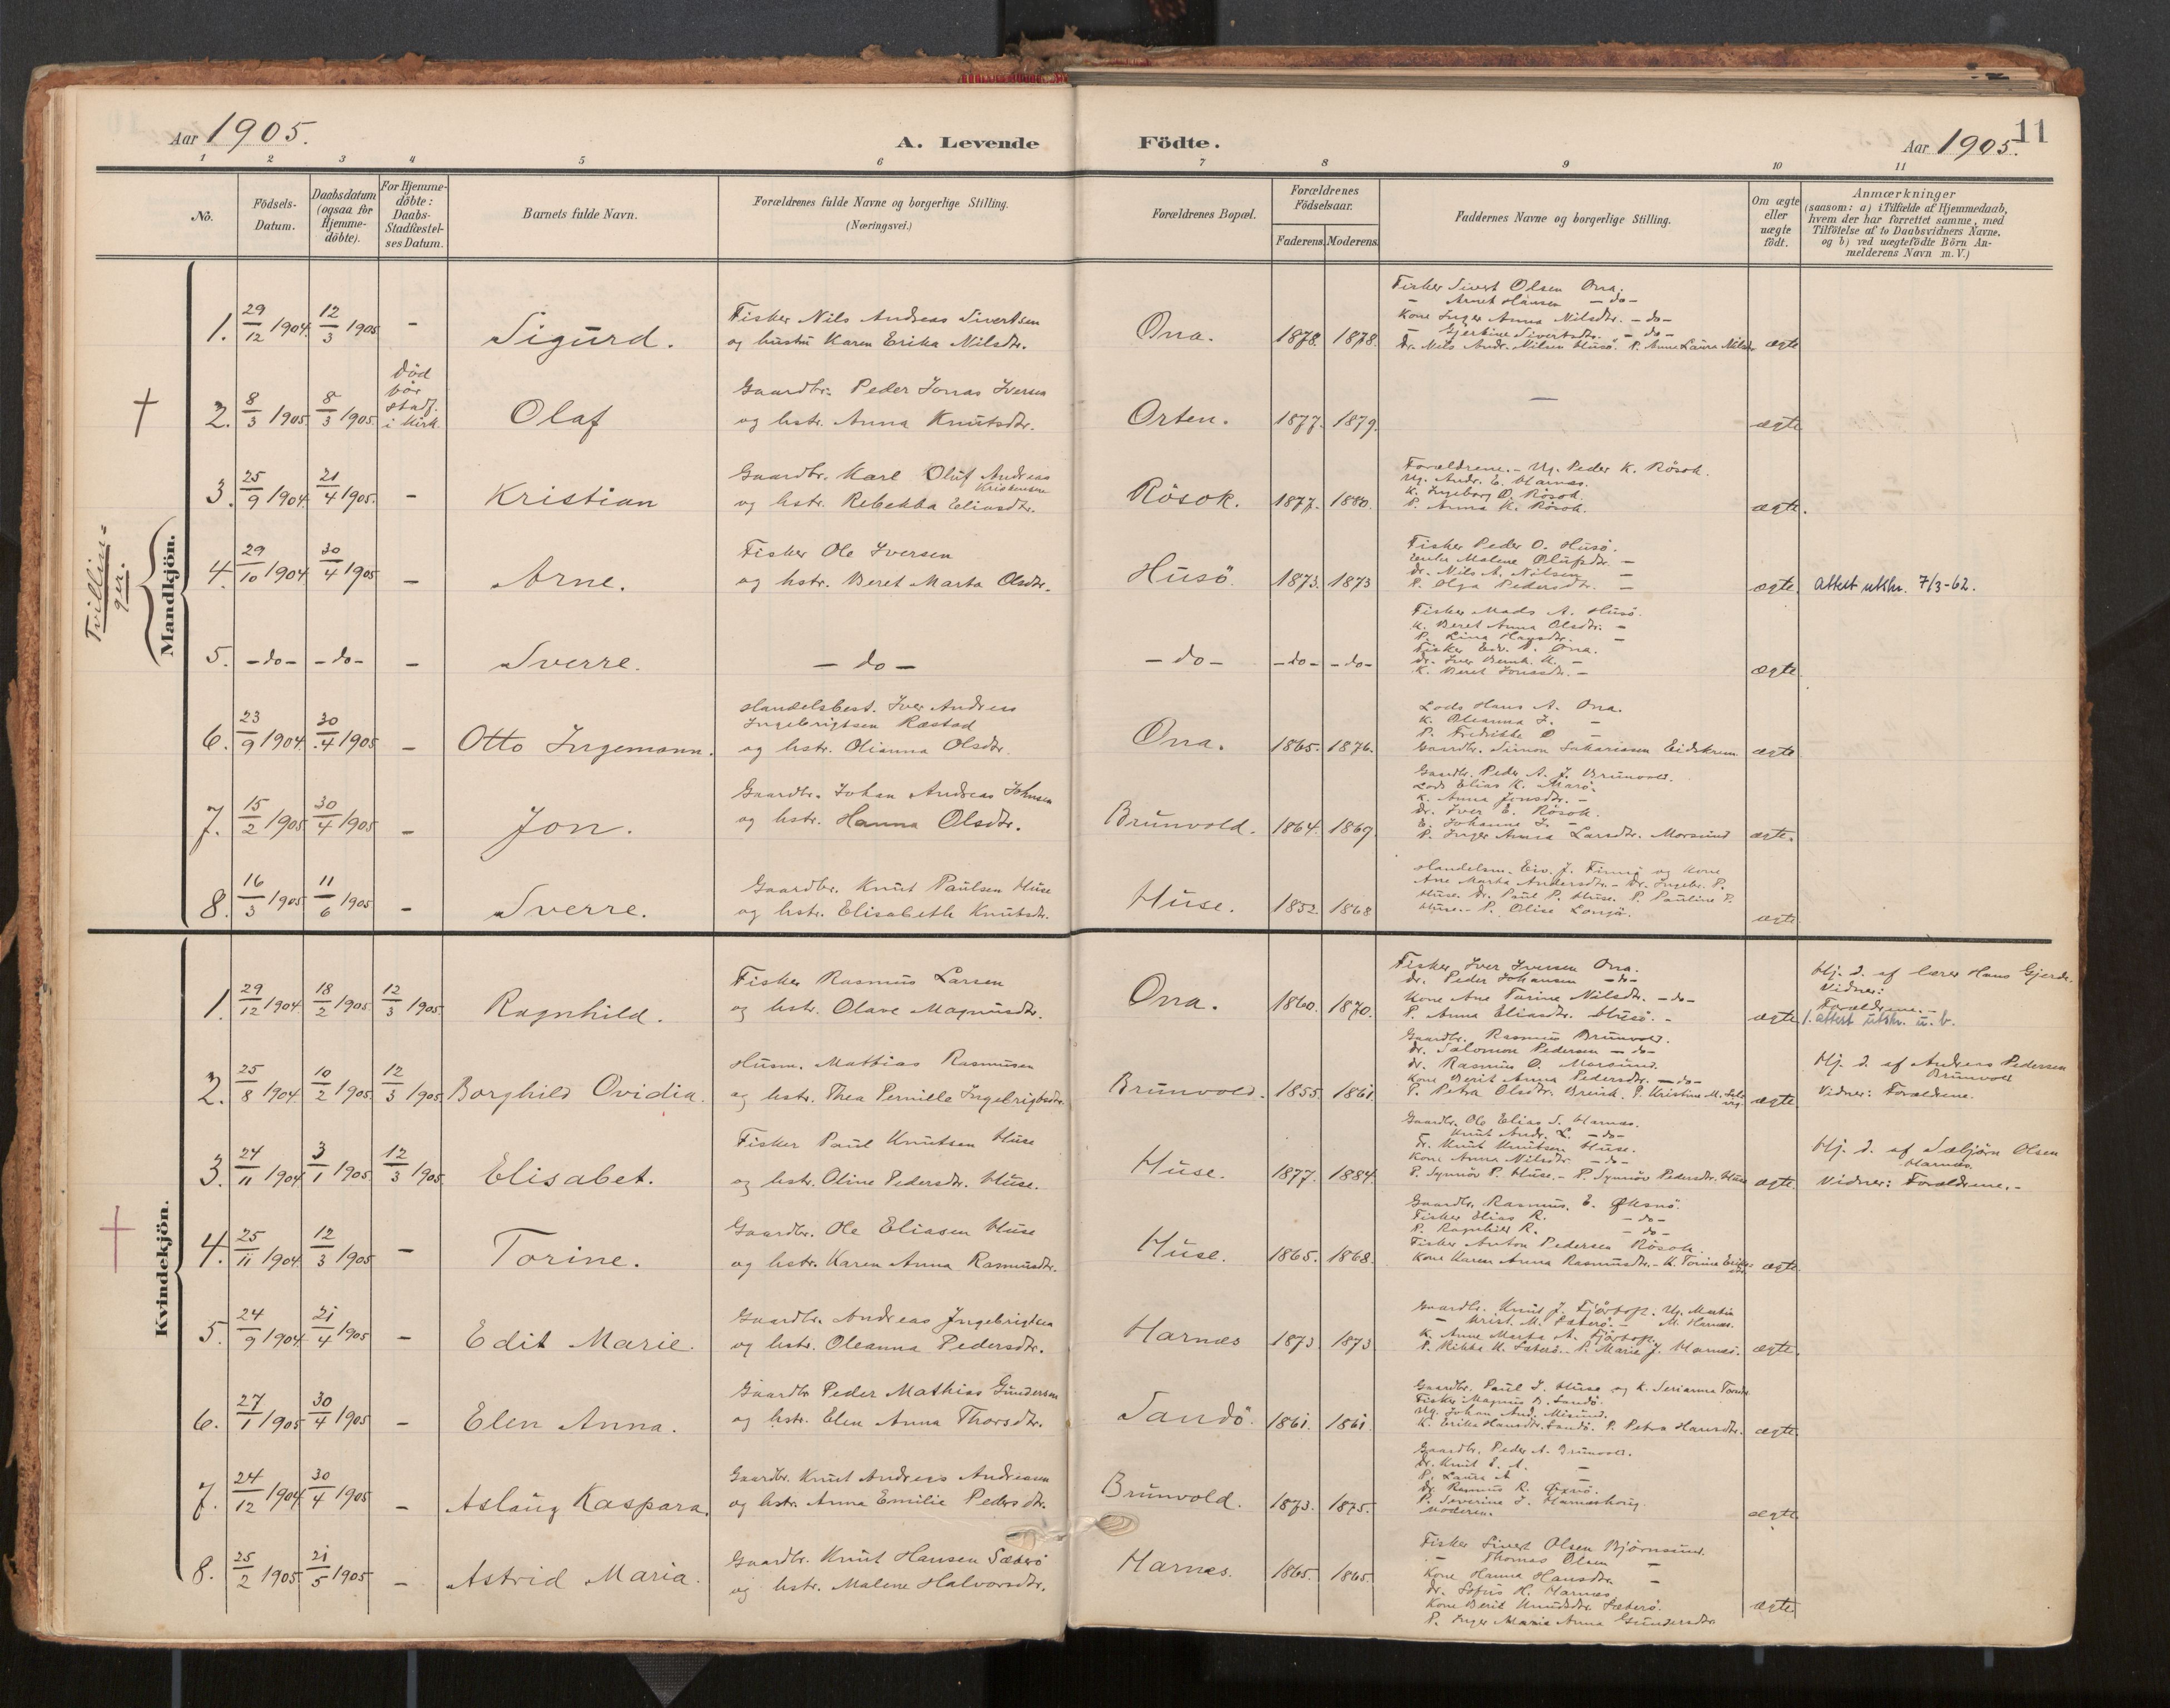 Aar 1905.
A. Levende Födte.
11
Aar 1905.
1 2 3 4 5 6 7 8 9 10 11
No.
Födsels-
Datum.
Daabsdatum
(ogsaa for
Hjemme-
döbte).
For Hjemme-
döbte:
Daabs-
Stadfæstel-
ses Datum.
Barnets fulde Navn.
Forældrenes fulde Navne og borgerlige Stilling.
(Næringsvei.)
Forældrenes Bopæl.
Forældrenes
Födselsaar.
Faderens. Moderens.
Faddernes Navne og borgerlige Stilling.
Om ægte
eller
uægte
födt.
Anmærkninger
(saasom: a) i Tilfælde af Hjemmedaab,
hvem der har forrettet samme, med
Tilföielse af to Daabsvidners Navne.
og b) ved uægtefödte Börn An-
melderens Navn m. V.)
Mandkjön.
1. 29/12 1904. 12/3 1905 - Sigurd.
Fisker Nils Andreas Sivertsen
og hustru Karen Erika Nilsdtr.
Ona. 1878. 1878.
Fisker Sivert Olsen Ona.
- Arnet Hansen -do-
Kone Inger Anna Nilsdtr. -do-
- Gjertine Sivertsdtr. -do-
Dr. Nils Andr. Nilsen Husö. P. Anne Laura Nilsdtr
ægte
†
2. 8/3 1905 8/3 1905.
död
för
stadf.
i Kirk.
Olaf
Gaardbr. Peder Jonas Iversen
og hstr. Anna Knutsdtr.
Orten. 1877. 1879.
—
ægte
3. 25/9 1904. 21/4 1905. - Kristian
Gaardbr. Karl Oluf Andreas
Kristensen
og hstr. Rebekka Eliasdtr.
Rösok. 1877. 1880.
Forældrene. - Ug. Peder K. Rösok.
Ug. Andr. E. Harnæs.
K. Ingeborg O. Rösok.
P. Anna K. Rösok.
ægte.
Tvillin=
ger.
4. 29/10 1904 30/4 1905 - Arne.
Fisker Ole Iversen
og hstr. Beret Marta Olsdtr.
Husö. 1873. 1873
Fisker Peder O. Husö.
Enke Malene Olufsdtr. -
Dr. Nils A. Nilsen -
P. Olga Pedersdtr. -
ægte. Attest utskr. 7/3-62.
5. -do- -do- - Sverre.
- do -
- do - -do- -do-
Fisker Mads A. Husö.
K. Beret Anna Olsdtr. -
P. Lina Hansdtr. -
Fisker Edv. P. Ona.
Dr. Iver Bernh. K. -
K. Beret Jonasdtr. -
ægte.
6. 23/9 1904. 30/4 1905 - Otto Ingemann.
Handelsbest. Iver Andreas
Ingebrigtsen Ræstad
og hstr. Olianna Olsdtr.
Ona. 1865. 1876.
Lods Hans A. Ona.
K. Oleanna J. -
P. Fredrikke O -
Gaardbr. Simon Sakariasen Eidskrem
ægte
7. 15/2 1905 30/4 1905 - Jon.
Gaardbr. Johan Andreas Johnsen
og hstr. Hanna Olsdtr.
Brunvold. 1864. 1869.
Gaardbr. Peder A. J. Brunvold.
Lods Elias K. Marö.
K. Anna Jonsdtr. -
Dr. Iver E. Rösok.
E. Johanna J. -
P. Inger Anna Larsdtr. Morsund
ægte.
8. 16/3 1905 11/6 1905 - Sverre.
Gaardbr. Knut Paulsen Huse
og hstr. Elisabeth Knutsdtr.
Huse. 1852. 1868
Handelsm. Eiv. J. Finnö og Kone
Ane Marta Andersdtr. - Dr. Ingebr. P.
Huse. Dr. Paul P. Huse. P. Pauline P.
Huse. - P. Olise Longö.
ægte
Kvindekjön.
1. 29/12 1904. 18/2 1905. 12/3 1905. Ragnhild.
Fisker Rasmus Larsen
og hstr. Olave Magnusdtr.
Ona. 1860. 1870.
Fisker Iver Iversen Ona.
Dr. Peder Johansen -do-
Kone Ane Tarine Nilsdtr. -do-
P. Anna Eliasdtr. Husö. -
ægte
Hj. d. af lærer Hans Gjerde.
Vidner:
Forældrene. -
1. attest utskr. u. b.
2. 25/8 1904 10/2 1905. 12/3 1905 Borghild Ovidia.
Husm. Mathias Rasmusen
og hstr. Thea Pernille Ingebrigtsdtr.
Brunvold. 1855. 1861.
Gaardbr. Rasmus Brunvold.
Dr. Salomon Pedersen -do-
Dr. Rasmus O. Morsund.
Kone Berit Anna Pedersdtr. -do-
P. Petra Olsdtr. Breivik. P. Kristine M.
ægte
Hj. d. af Anders Pedersen
Brunvold
Vidner: Forældrene.
3. 24/11 1904 3/1 1905. 12/3 1905. Elisabet.
Fisker Paul Knutsen Huse
og hstr. Oline Pedersdtr. Huse.
Huse. 1877. 1884.
Gaardbr. Ole Elias S. Harnæs.
Knut Andr. L. -do-
Fr. Knut Knutsen Huse.
Kone Anna Nilsdtr. -do-
P. Synnöv P. Huse. - P. Synnöv Pedersdtr. Huse
ægte.
Hj. d. af Sæbjörn Olsen
Harnæs.
Vidner: Forældrene. -
†
4. 25/11 1904 12/3 1905 - Torine.
Gaardbr. Ole Eliasen Huse
og hstr. Karen Anna Rasmusdtr.
Huse. 1865. 1868.
Gaardbr. Rasmus. E. Öksnö.
Fisker Elias R. -do-
P. Ragnhild R. -do-
Fisker Anton Pedersen Rösok.
Kone Karen Anna Rasmusdtr. - K. Torine
ægte.
5. 24/9 1904. 21/4 1905 - Edit Marie.
Gaardbr. Andreas Ingebrigtsen
og hstr. Oleanna Pedersdtr.
Harnæs 1873. 1873
Gaardbr. Knut J. Fjörtoft. Ug. Martin
- Krist. M. Sæterö. - M. Harnæs.
K. Anne Marta A. Fjörtoft.
P. Rikka K. Sæterö. - P. Marie J. Harnæs.
ægte.
6. 27/1 1905 30/4 1905 - Elen Anna.
Gaardbr Peder Mathias Gundersen
og hstr. Elen Anna Thorsdtr.
Sandö. 1861. 1861
Gaardbr. Paul J. Huse og K. Serianna
Fisker Magnus B. Sandö.
Ug. Johan And. Misund.
K. Erika Hansdtr. Sandö. P. Petra Hansdtr.
ægte.
7. 24/12 1904 30/4 1905 - Aslaug Kaspara.
Gaardbr. Knut Andreas Andreasen
og hstr. Anna Emilie Pedersdtr.
Brunvold. 1873. 1875.
Gaardbr. Peder A. Brunvold.
Dr. Knut E. A. -
P. Laura A -
Dr. Rasmus R. Öxnö.
P. Severine J. Harnæshoug.
Moderen.
ægte
8. 25/2 1905 21/5 1905 - Astrid Maria.
Gaardbr. Knut Hansen Sæterö
og hstr. Malene Halvorsdtr.
Harnæs. 1865. 1865.
Fisker Sivert Olsen Björnsund.
- Thomas Olsen -
Kone Hanna Hansdtr. -
Dr. Sofus H. Harnæs
Kone Berit Knudsdtr. Sæterö.
P. Inger Maria Anna Gundersdtr.
ægte.